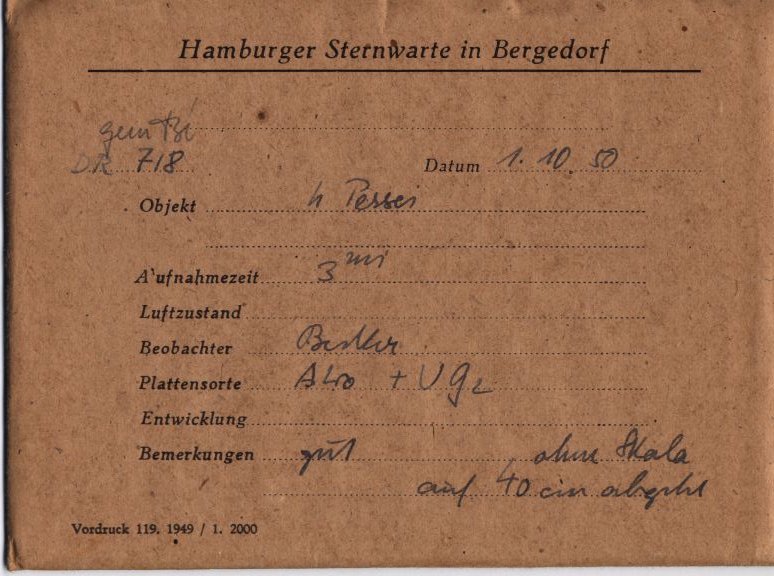 Hamburger Sternwarte in Bergedorf
gem Bi
DR 718 Datum 1. 10 50
Objekt h Persei
Aufnahmezeit 3 min
Luftzustand
Beobachter
Plattensorte + UG2
Entwicklung
Bemerkungen gut ohne Skala
auf 40 cm
Vordruck 119. 1949 / 1. 2000